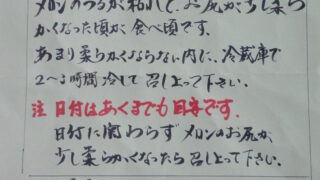 メロンのつるが枯れて、お尻が少し柔ら
かくなった頃が食べ頃です。
あまり柔らかくならない内に、冷蔵庫で
2〜3時間冷して召し上って下さい。
注 日付はあくまでも目安です。
日付に関わらずメロンのお尻が
少し柔らかくなったら召し上って下さい。